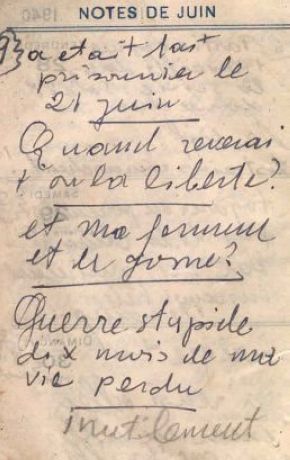 NOTES DE JUIN
a etait fast
prisonnier le
21 juin
Quand reverai
t on la liberte?
et ma femme
et le gome?
Guerre stupide
dix mois de ma
vie perdu
inutilement